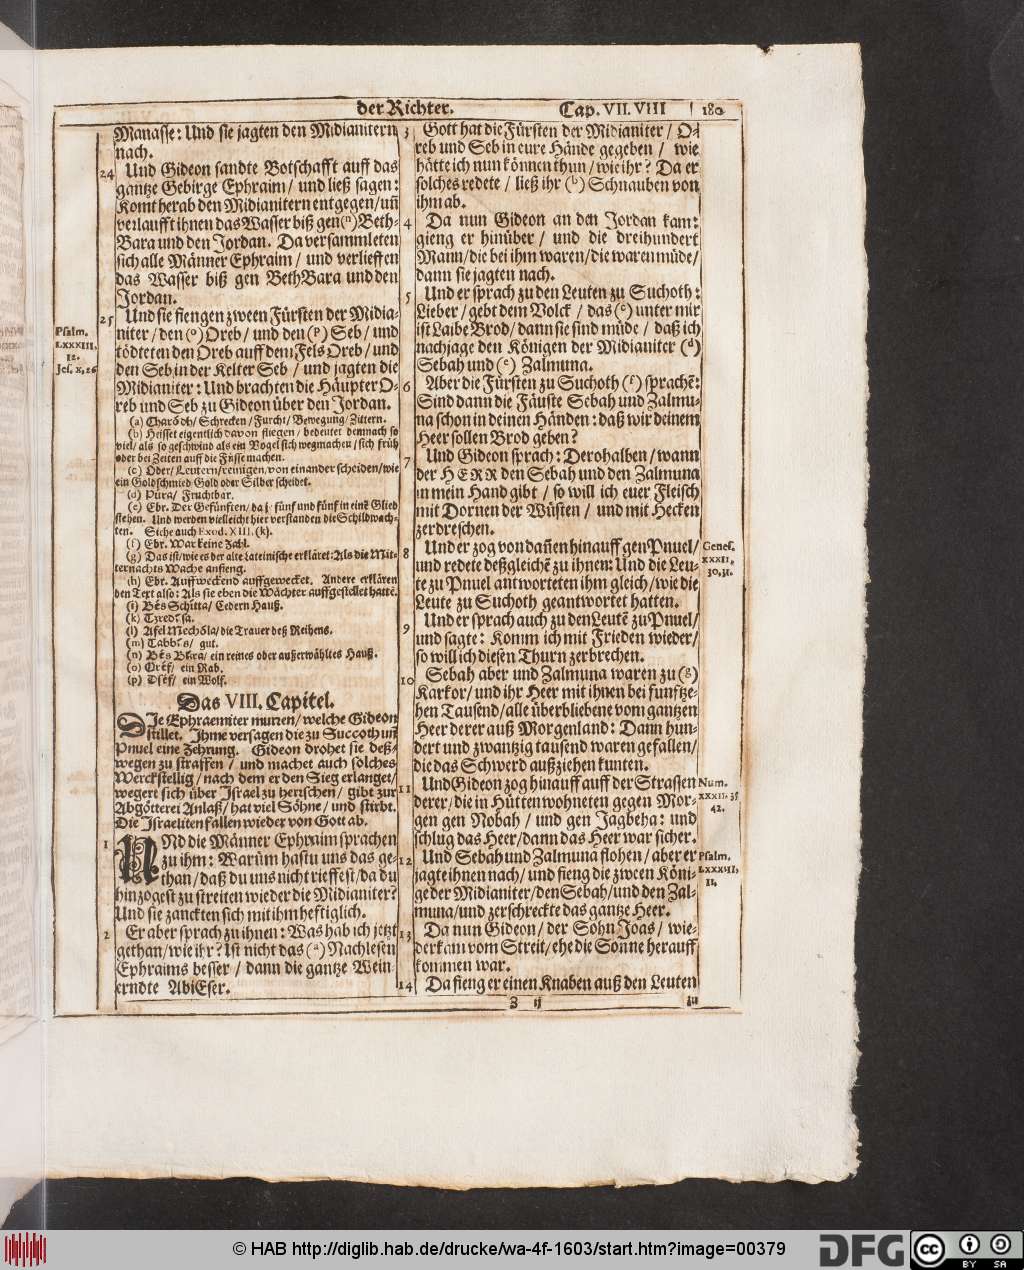 der Richter. Cap. VII. VIII 180
Manasse: Und sie jagten den Midianitern
nach.
24 Und Gideon sandte Botschafft auff das
gantze Gebirge Ephraim / und ließ sagen:
Komt herab den Midianitern entgegen / uñ
verlaufft ihnen das Wasser biß gen (n) Beth-
Bara und den Jordan. Da versammleten
sich alle Männer Ephraim / und verlieffen
das Wasser biß gen BethBara und den
Jordan.
25 Und sie fiengen zween Fürsten der Midia-
Psalm.
LXXXIII,
12.
Jes. X, 26
niter / den (o) Oreb / und den (p) Seb / und
tödteten den Oreb auff dem Fels Oreb / und
den Seb in der Kelter Seb / und jagten die
Midianiter: Und brachten die Häupter O-
reb und Seb zu Gideon über den Jordan.
(a) Charódh / Schrecken / Furcht / Bewegung / Zittern.
(b) Heisset eigentlich davon fliegen / bedeutet dennach so
viel / als so geschwind als ein Vogel sich wegmachen / sich früh
oder bei Zeiten auff die Füsse machen.
(c) Oder / Leutern / reinigen / von einander scheiden / wie
ein Goldschmied Gold oder Silber scheidet.
(d) Pura / Fruchtbar.
(e) Ebr. Der Gefünften / da j. fünf und fünf in einē Glied
stehen. Und werden vielleicht hier verstanden die Schildwach-
ten. Siehe auch Exod. XIII. (k).
(f) Ebr. War keine Zahl.
(g) Das ist / wie es der alte Lateinische erkläret: Als die Mit-
ternachts Wache anfieng.
(h) Ebr. Auffweckend auffgewecket. Andere erklären
den Text also: Als sie eben die Wächter auffgestellet hatte.
(i) Bês Schitta / Cedern Hauß.
(k) Tzredsa.
(l) Afel Mechôla / die Trauer deß Reihens.
(m) Tabbs / gut.
(n) Bês Bara / ein reines oder außerwähltes Hauß.
(o) Oréf / ein Rab.
(p) Dséf / ein Wolf.
Das VIII. Capitel.
DIe Ephraemiter murren / welche Gideon
stillet. Ihme versagen die zu Succoth uñ
Pnuel eine Zehrung. Gideon drohet sie deß-
wegen zu straffen / und machet auch solches
Werckstellig / nach dem er den Sieg erlanget /
wegert sich über Israel zu herrschen / gibt zur
Abgötterei Anlaß / hat viel Söhne / und stirbt.
Die Israeliten fallen wieder von Gott ab.
1 UNd die Männer Ephraim sprachen
zu ihm: Warüm hastu uns das ge-
than / daß du uns nicht rieffest / da du
hinzogest zu streiten wieder die Midianiter?
Und sie zanckten sich mit ihm heftiglich.
2 Er aber sprach zu ihnen: Was hab ich jetzt
gethan / wie ihr? Ist nicht das (a) Nachlesen
Ephraims besser / dann die gantze Wein-
erndte AbiEser.
3 Gott hat die Fürsten der Midianiter / O-
reb und Seb in eure Hände gegeben / wie
hätte ich nun können thun / wie ihr? Da er
solches redete / ließ ihr (b) Schnauben von
ihm ab.
4 Da nun Gideon an den Jordan kam:
gieng er hinüber / und die dreihundert
Mann / die bei ihm waren / die waren müde /
dann sie jagten nach.
5 Und er sprach zu den Leuten zu Suchoth:
Lieber / gebt dem Volck / das (c) unter mir
ist Laibe Brod / dann sie sind müde / daß ich
nachjage den Königen der Midianiter (d)
Sebah und (e) Zalmuna.
6 Aber die Fürsten zu Suchoth (f) sprachē:
Sind dann die Fäuste Sebah und Zalmu-
na schon in deinen Händen: daß wir deinem
Heer sollen Brod geben?
7 Und Gideon sprach: Derohalben / wann
der HERR den Sebah und den Zalmuna
in mein Hand gibt / so will ich euer Fleisch
mit Dornen der Wüsten / und mit Hecken
zerdreschen.
8 Und er zog von dañen hinauff gen Pnuel /
Genes.
XXXII,
30,31.
und redete deßgleichē zu ihnen: Und die Leu-
te zu Pnuel antworteten ihm gleich / wie die
Leute zu Suchoth geantwortet hatten.
9 Und er sprach auch zu den Leutē zu Pnuel /
und sagte: Komm ich mit Frieden wieder /
so will ich diesen Thurn zerbrechen.
10 Sebah aber und Zalmuna waren zu (g)
Karkor / und ihr Heer mit ihnen bei funftze-
hen Tausend / alle überbliebene vom gantzen
Heer derer auß Morgenland: Dann hun-
dert und zwantzig tausend waren gefallen /
die das Schwerd außziehen kunten.
11 Und Gideon zog hinauff auff der Strassen
Num.
XXXII. 35
42.
derer / die in Hütten wohneten gegen Mor-
gen gen Nobah / und gen Jagbeha: und
schlug das Heer / dann das Heer war sicher.
12 Und Sebah und Zalmuna flohen / aber er
Psalm.
LXXXIII,
12.
jagte ihnen nach / und fieng die zween Köni-
ge der Midianiter / den Sebah / und den Zal-
muna / und zerschreckte das gantze Heer.
13 Da nun Gideon / der Sohn Joas / wie-
derkam vom Streit / ehe die Sonne herauff
kommen war.
14 Da fieng er einen Knaben auß den Leuten
Z ij zu
© HAB http://diglib.hab.de/drucke/wa-4f-1603/start.htm?image=00379
DFG
cc BY SA